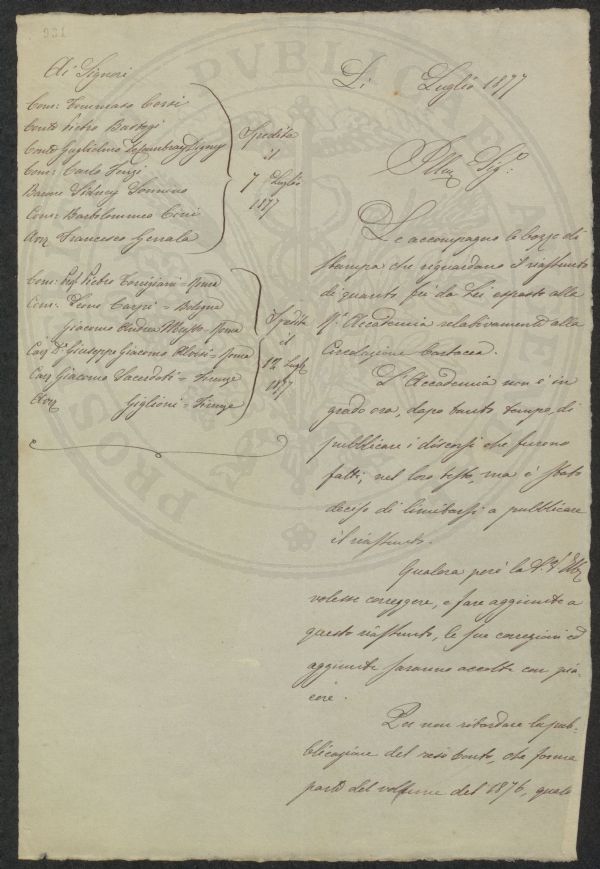 931
Ai Signori
Com: Tommaso Corsi
Conte Pietro Bastogi
Conte Guglielmo Decambray Digny
Com: Carlo Fenzi
Barone Sidney Sonnino
Com: Bartolommeo Cini
Avv. Francesco Genala
Spedita
il
7 Luglio
1877
Com: Pietro Torrigiani = Roma
Com: Leone Carpi = Bologna
Giacomo Andrea = Roma
Cav. Dr Giuseppe Giacomo Alvisi = Roma
Cav. Giacomo Sacerdoti = Firenze
Avv. Giglioni = Firenze
Spedita
il
12 Luglio
1877
Li Luglio 1877
Illmo Sig:
Le accompagno le bozze di
stampa che riguardano il riassunto
di quanto fu da Lei esposto alla
R. Accademia relativamente alla
Circolazione Cartacea.
L'Accademia non è in
grado ora, dopo tanto tempo, di
pubblicare i discorsi che furono
fatti, nel loro testo, ma è stato
deciso di limitarsi a pubblicare
il riassunto.
Qualora però la S. V. Illma
volesse correggere, e fare aggiunte a
questo riassunto, le sue correzioni ed
aggiunte saranno accolte con pia-
cere.
Per non ritardare la pub-
blicazione del resoconto, che forma
parte del volume del 1876, quale
PVBLICAE
PROS